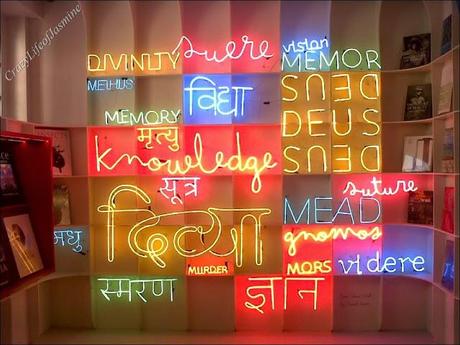 CrazyLifeofJasmine
DIVINITY suere vision
MEMOR
विद्या
DEUS
MEMORY
DEUS
मृत्यु
DEUS
knowledge
सूत्र
suture
दिव्या
MEAD
मधु
gnomos
MURDER MORS videre
स्मरण ज्ञान